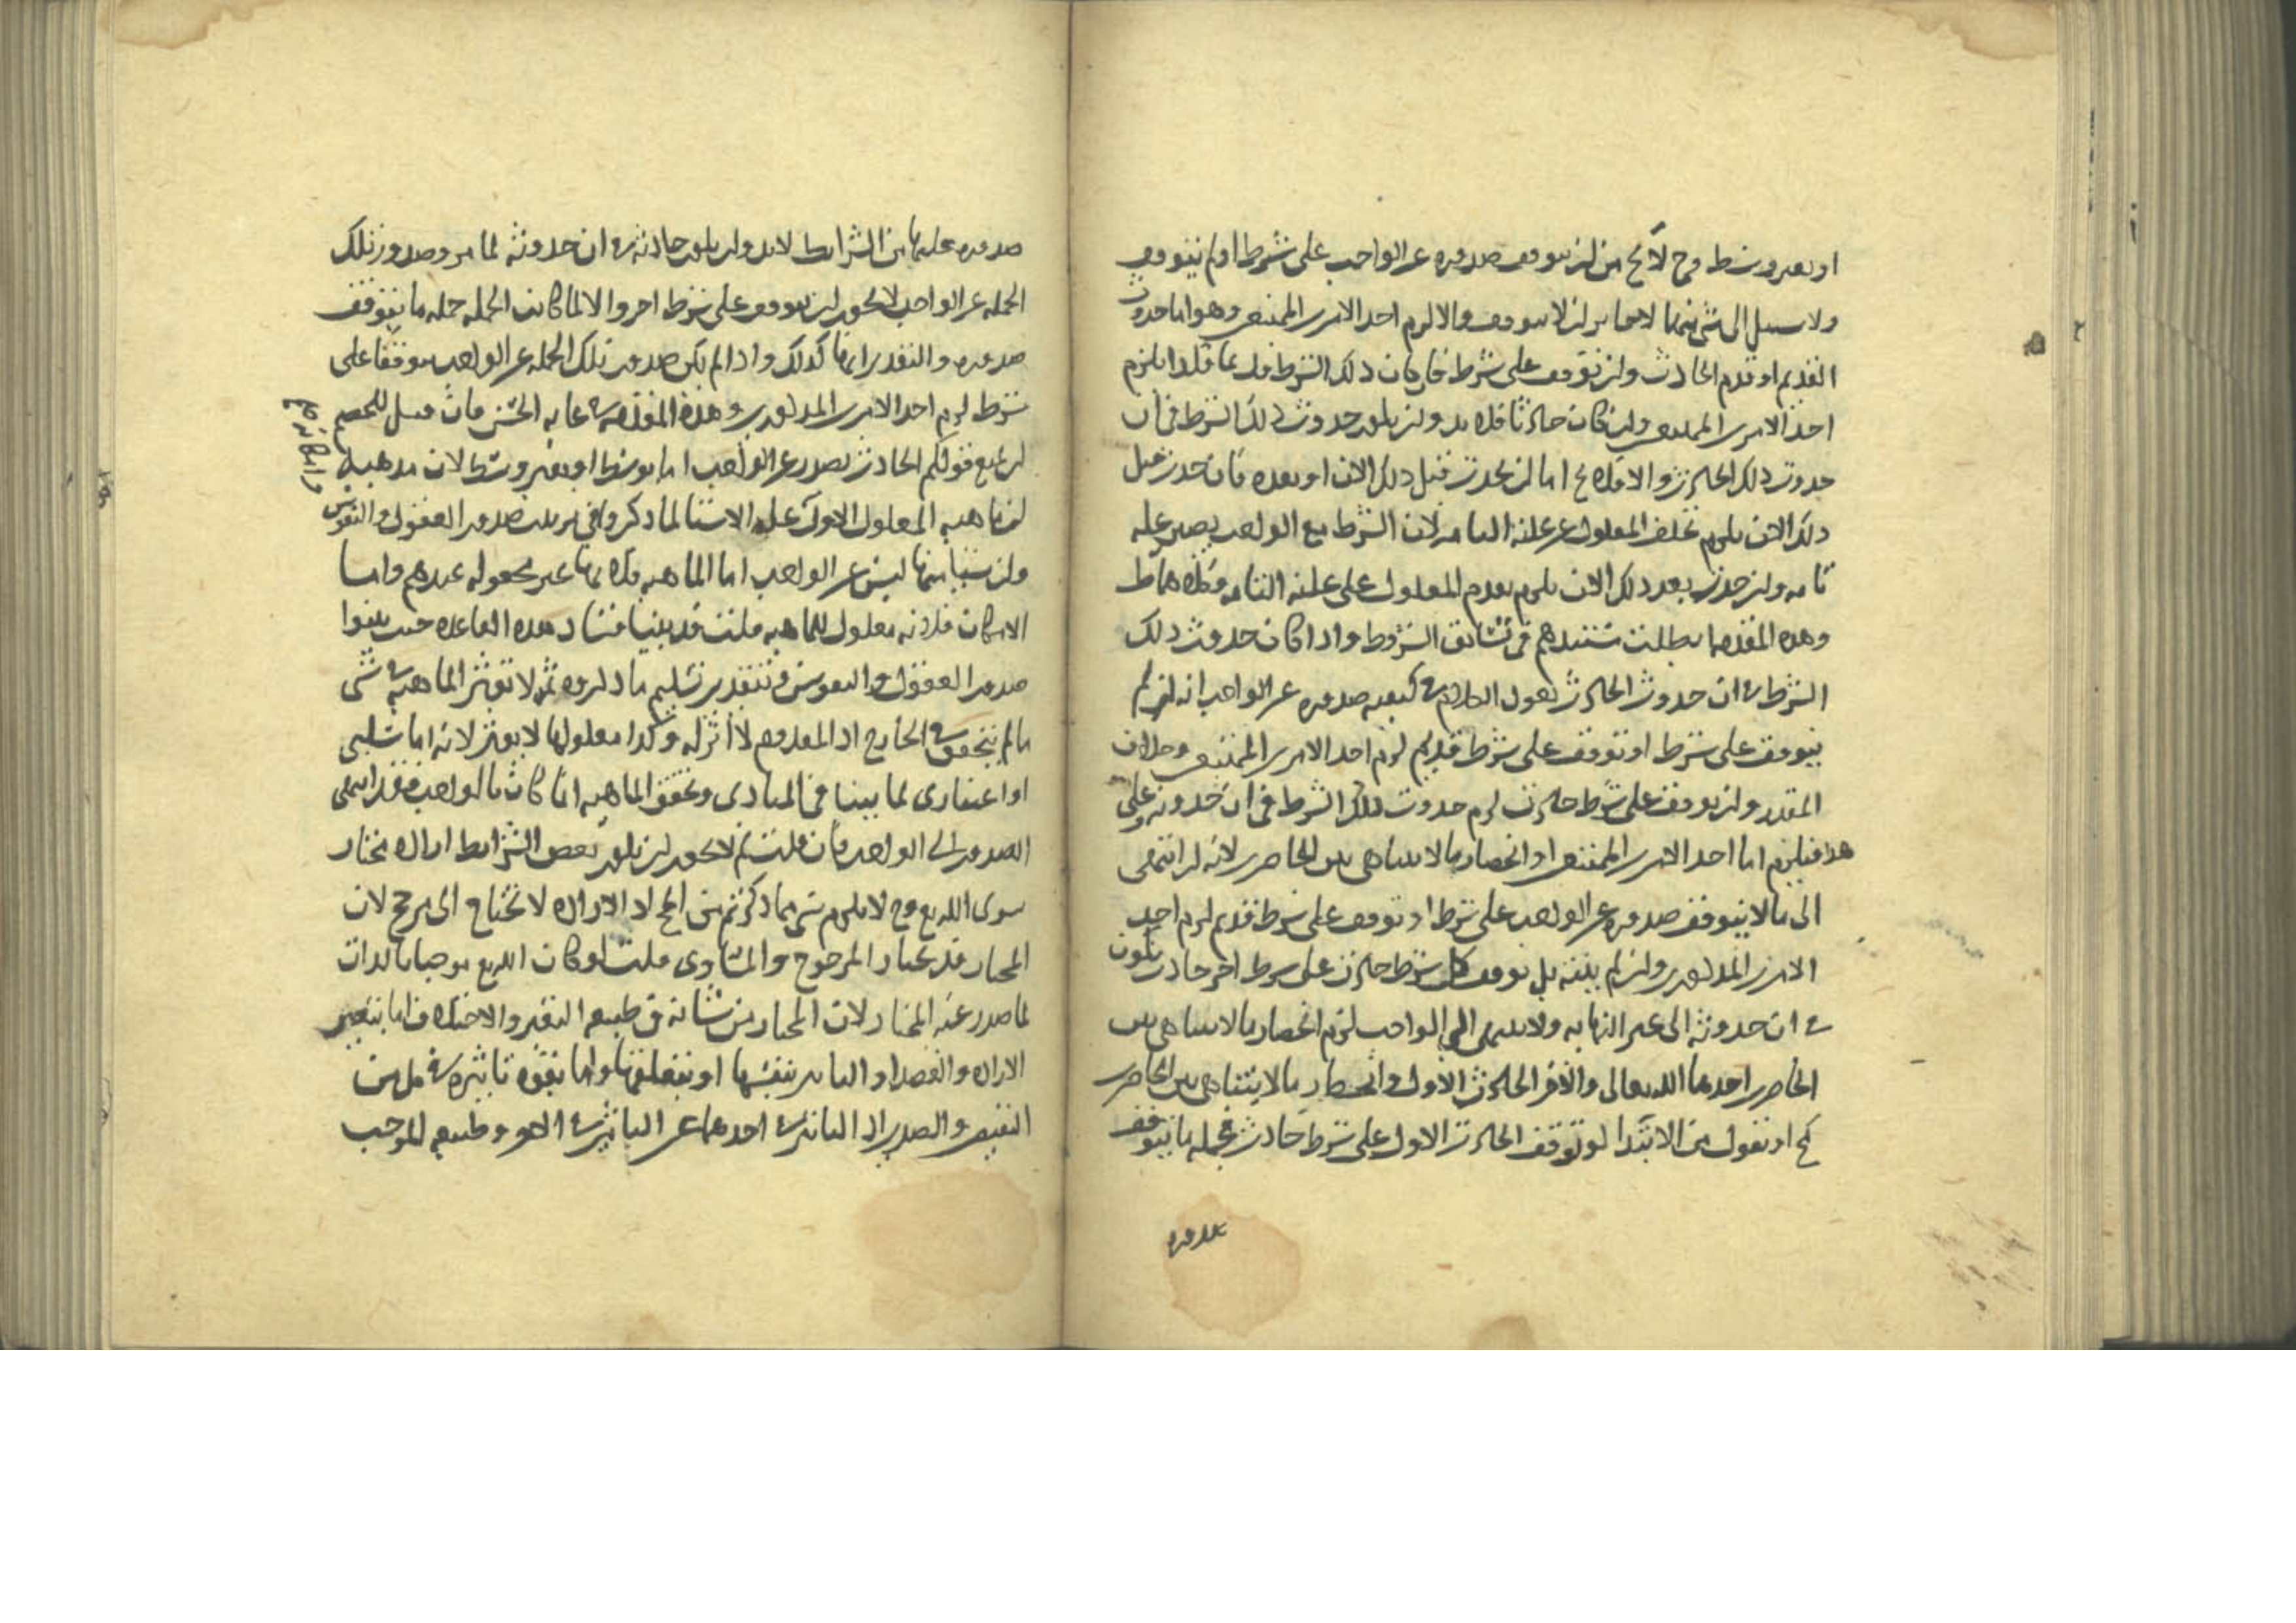 او بغير وسط وح لا يخ من ان يتوقف صدوره عن الواجب على شرط او لم يتوقف
ولا سبيل الى شئ منهما لا جايز ان لا يتوقف والا لزم احد الامرين الممتنعين وهو اما حدوث
القديم او قدم الحادث وان توقف على شرط فان كان ذلك الشرط قديما فكذا يلزم
احد الامرين الممتنعين وان كان حادثا فلا بد وان يكون حدوث ذلك الشرط في آن
حدوث ذلك الحادث والا فلا يخ اما ان يحدث قبل ذلك الان او بعده فان حدث قبل
ذلك الان يلزم تخلف المعلول عن علته التامة لان الشرط مع الواجب يصير علة
تامة وان حدث بعد ذلك الان يلزم تقدم المعلول على علته التامة وكلاهما ط
وهذه المقدمة ابطلت سندهم في تسابق الشروط واذا كان حدوث ذلك
الشرط في ان حدوث الحادث نقول الكلام في كيفية صدوره عن الواجب انه ان لم
يتوقف على شرط او توقف على شرط قديم لزم احد الامرين الممتنعين وخلاف
المقدر وان توقف على شرط حادث لزم حدوث ذلك الشرط في ان حدوثه وعلى
هذا فيلزم اما احد الامرين الممتنعين او انحصار ما لا يتناهى بين الحاصرين لانه ان انتهى
الى ما لا يتوقف صدوره عن الواجب على شرط او توقف على شرط قديم لزم احد
الامرين المذكورين وان لم ينته بل توقف كل شرط حادث على شرط اخر حادث يكون
في ان حدوثه الى غير النهاية ولا ينتهى الى الواجب لزم انحصار ما لا يتناهى بين
الحاصرين احدهما الله تعالى والاخر الحادث الاول وانحصار ما لا يتناهى بين الحاصرين
مح او نقول من الابتدا لو توقف الحادث الاول على شرط حادث فجملة ما يتوقف
صدوره
صدوره عليها من الشرايط لا بد وان يكون حادثة في ان حدوثه لما مر وصدور تلك
الجملة عن الواجب لا يجوز ان يتوقف على شرط اخر والا لما كانت الجملة جملة ما يتوقف
صدوره والتقدير انها كذلك واذا لم يكن صدور تلك الجملة عن الواجب موقوفا على
شرط لزم احد الامرين المذكورين وهذه المقدمة في غاية الحسن فان قيل للخصم
ان يمنع قولكم الحادث يصدر عن الواجب اما بوسط او بغير وسط لان مذهبهم
ان ماهية المعلول الاول وامكانه علة الاشيا لما ذكروا في ترتيب صدور العقول والنفوس
وان شيئا منها ليس عن الواجب اما الماهية فلانها غير مجعولة عندهم واما
الامكان فلانه معلول للماهية قلت قد بينا فساد هذه القاعدة حيث بينوا
صدور العقول والنفوس وبتقدير تسليم ما ذكروه ثمه لا تؤثر الماهية في شئ
ما لم يتحقق في الخارج اذ المعدوم لا اثر له وكذا معلولها لا يؤثر لانه اما سلبي
او اعتباري لما بينا في المبادى وتحقق الماهية انما كانت بالواجب فقد انتهى
الصدور الى الواجب فان قلت لم لا يجوز ان يكون بعض الشرايط ارادة مختار
سوى الله تع وح لا يلزم شئ مما ذكرتم من المح اذ الارادة لا تحتاج الى مرجح لان
المختار قد يختار المرجوح والمساوى قلت لو كان الله تع موجبا بالذات
لما صدر عنه المختار لان المختار من شانه في طبيعه التغير والاختلاف اما بتغير
الارادة والقصد او التاثير بنفسها او بتعلقها واما بقوه تاثيره في كل من
النقيضين والضدين اذ التاثير في احدهما غير التاثير في الاخر وطبيعه الموجب